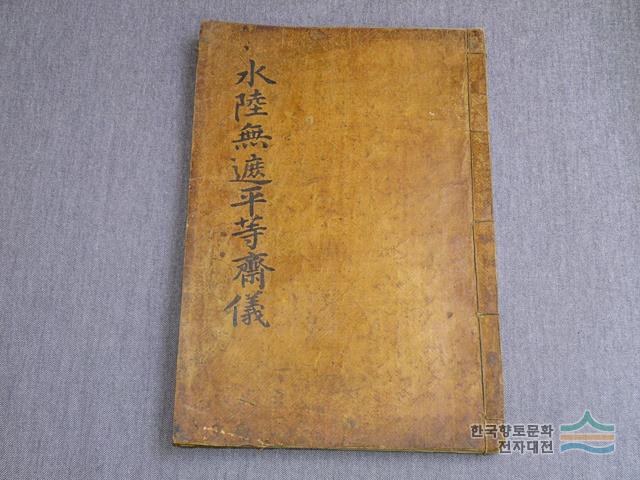 水陸無遮平等齋儀
한국향토문화
전자대전